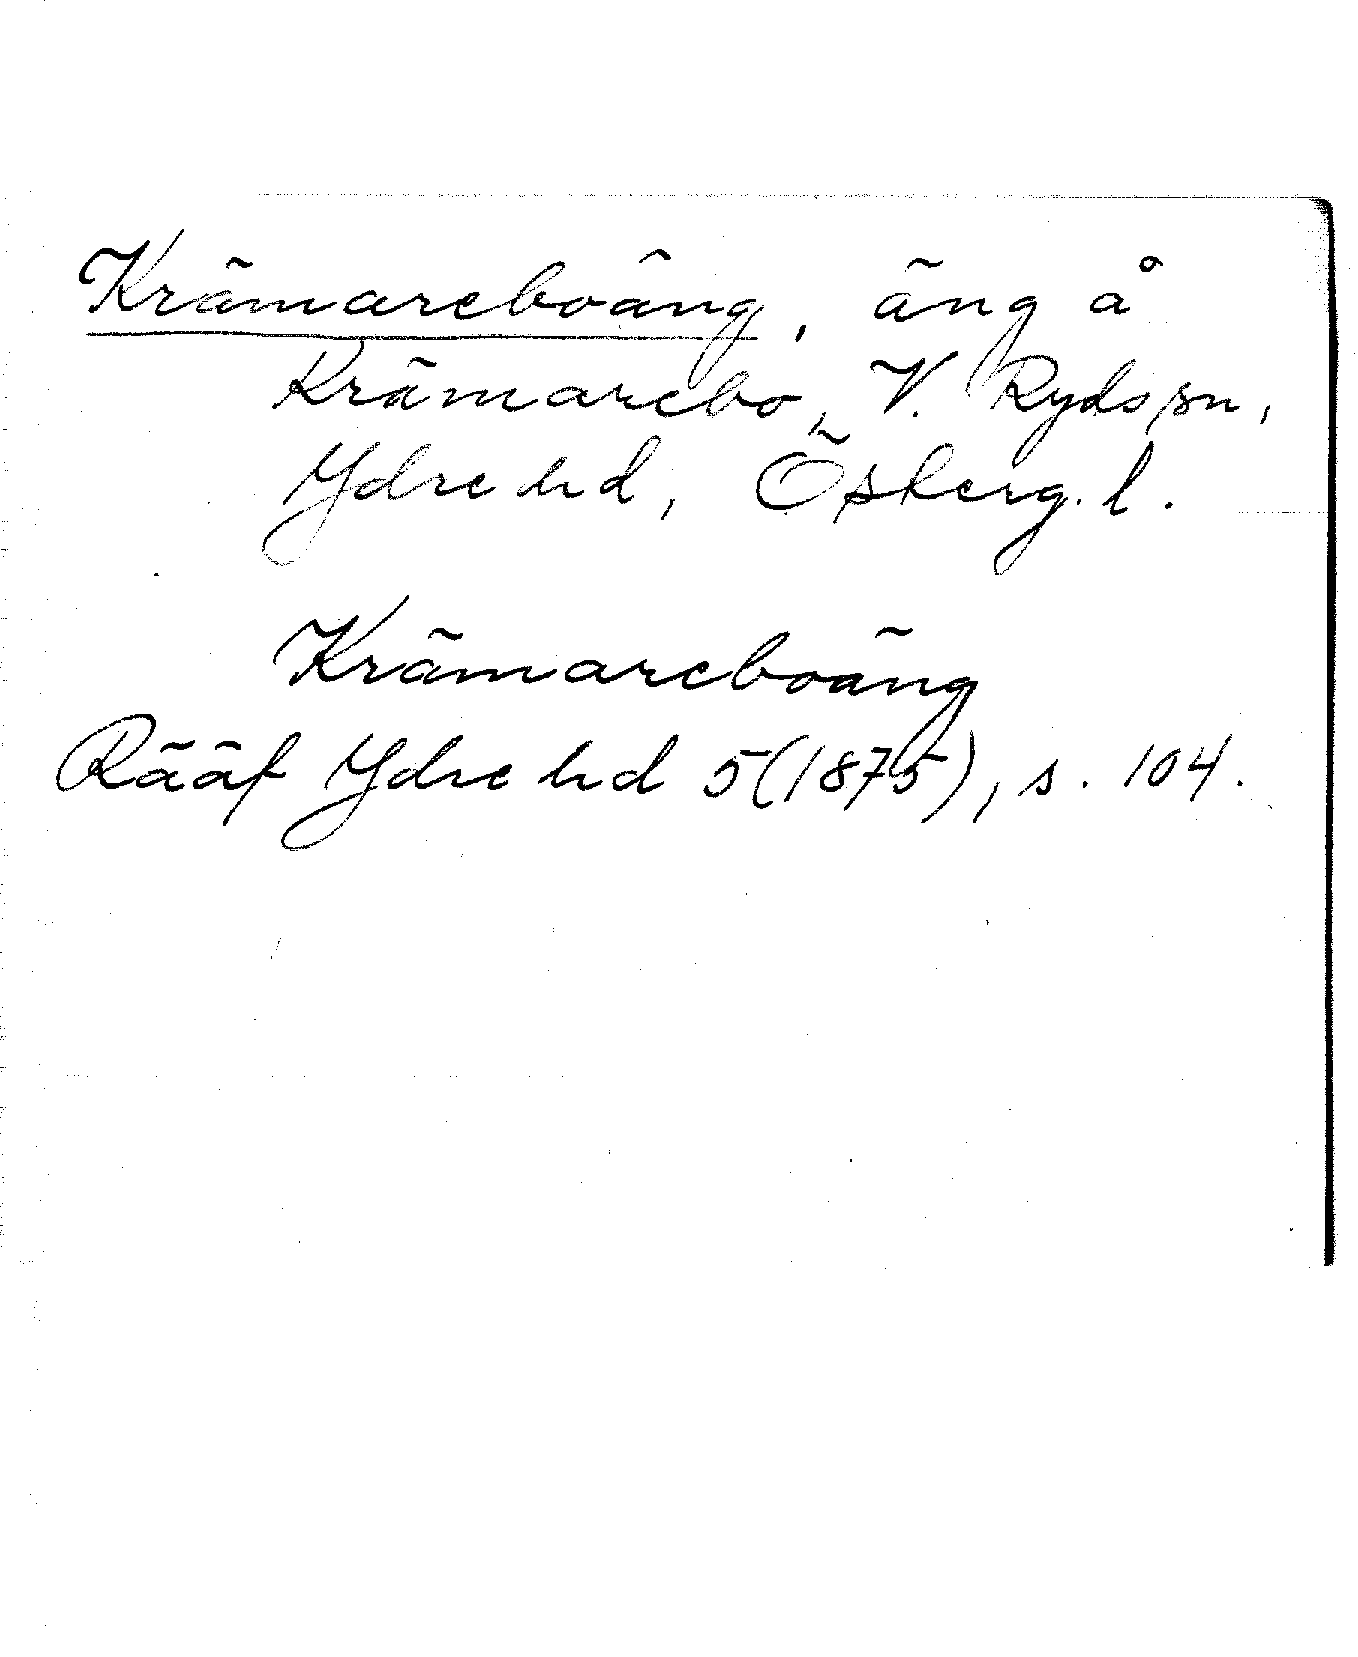 Krämareboäng, äng å
Krämarebo, V. Ryds sn,
Ydre hd, Öst̶erg. l.
Krämareboäng
Rääf Ydre hd 5(1875), s. 104.